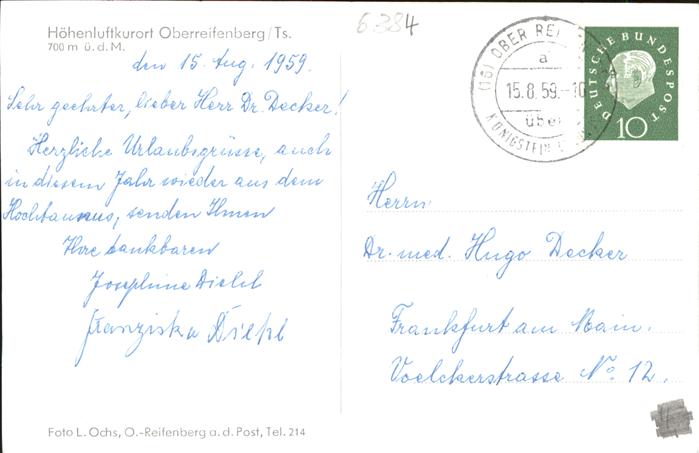 Höhenluftkurort Oberreifenberg/Ts.
700 m ü. d. M.
den 15. Aug. 1959.
Sehr geehrter, lieber Herr Dr. Decker!
Herzliche Urlaubsgrüsse, auch
in diesem Jahr wieder aus dem
Hochtaunus, senden Ihnen
Ihre dankbaren
Josephine Diehl
Franziska Diehl
Foto L. Ochs, O.-Reifenberg a. d. Post, Tel. 214
6384
(16) OBER REI
a
15.8.59.-10
über
KÖNIGSTEIN
DEUTSCHE BUNDESPOST
10
Herrn
Dr. med. Hugo Decker
Frankfurt am Main.
Voelckerstrasse No. 12.